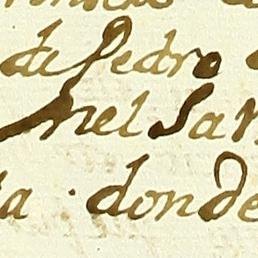 de Pedro
nel San
a donde